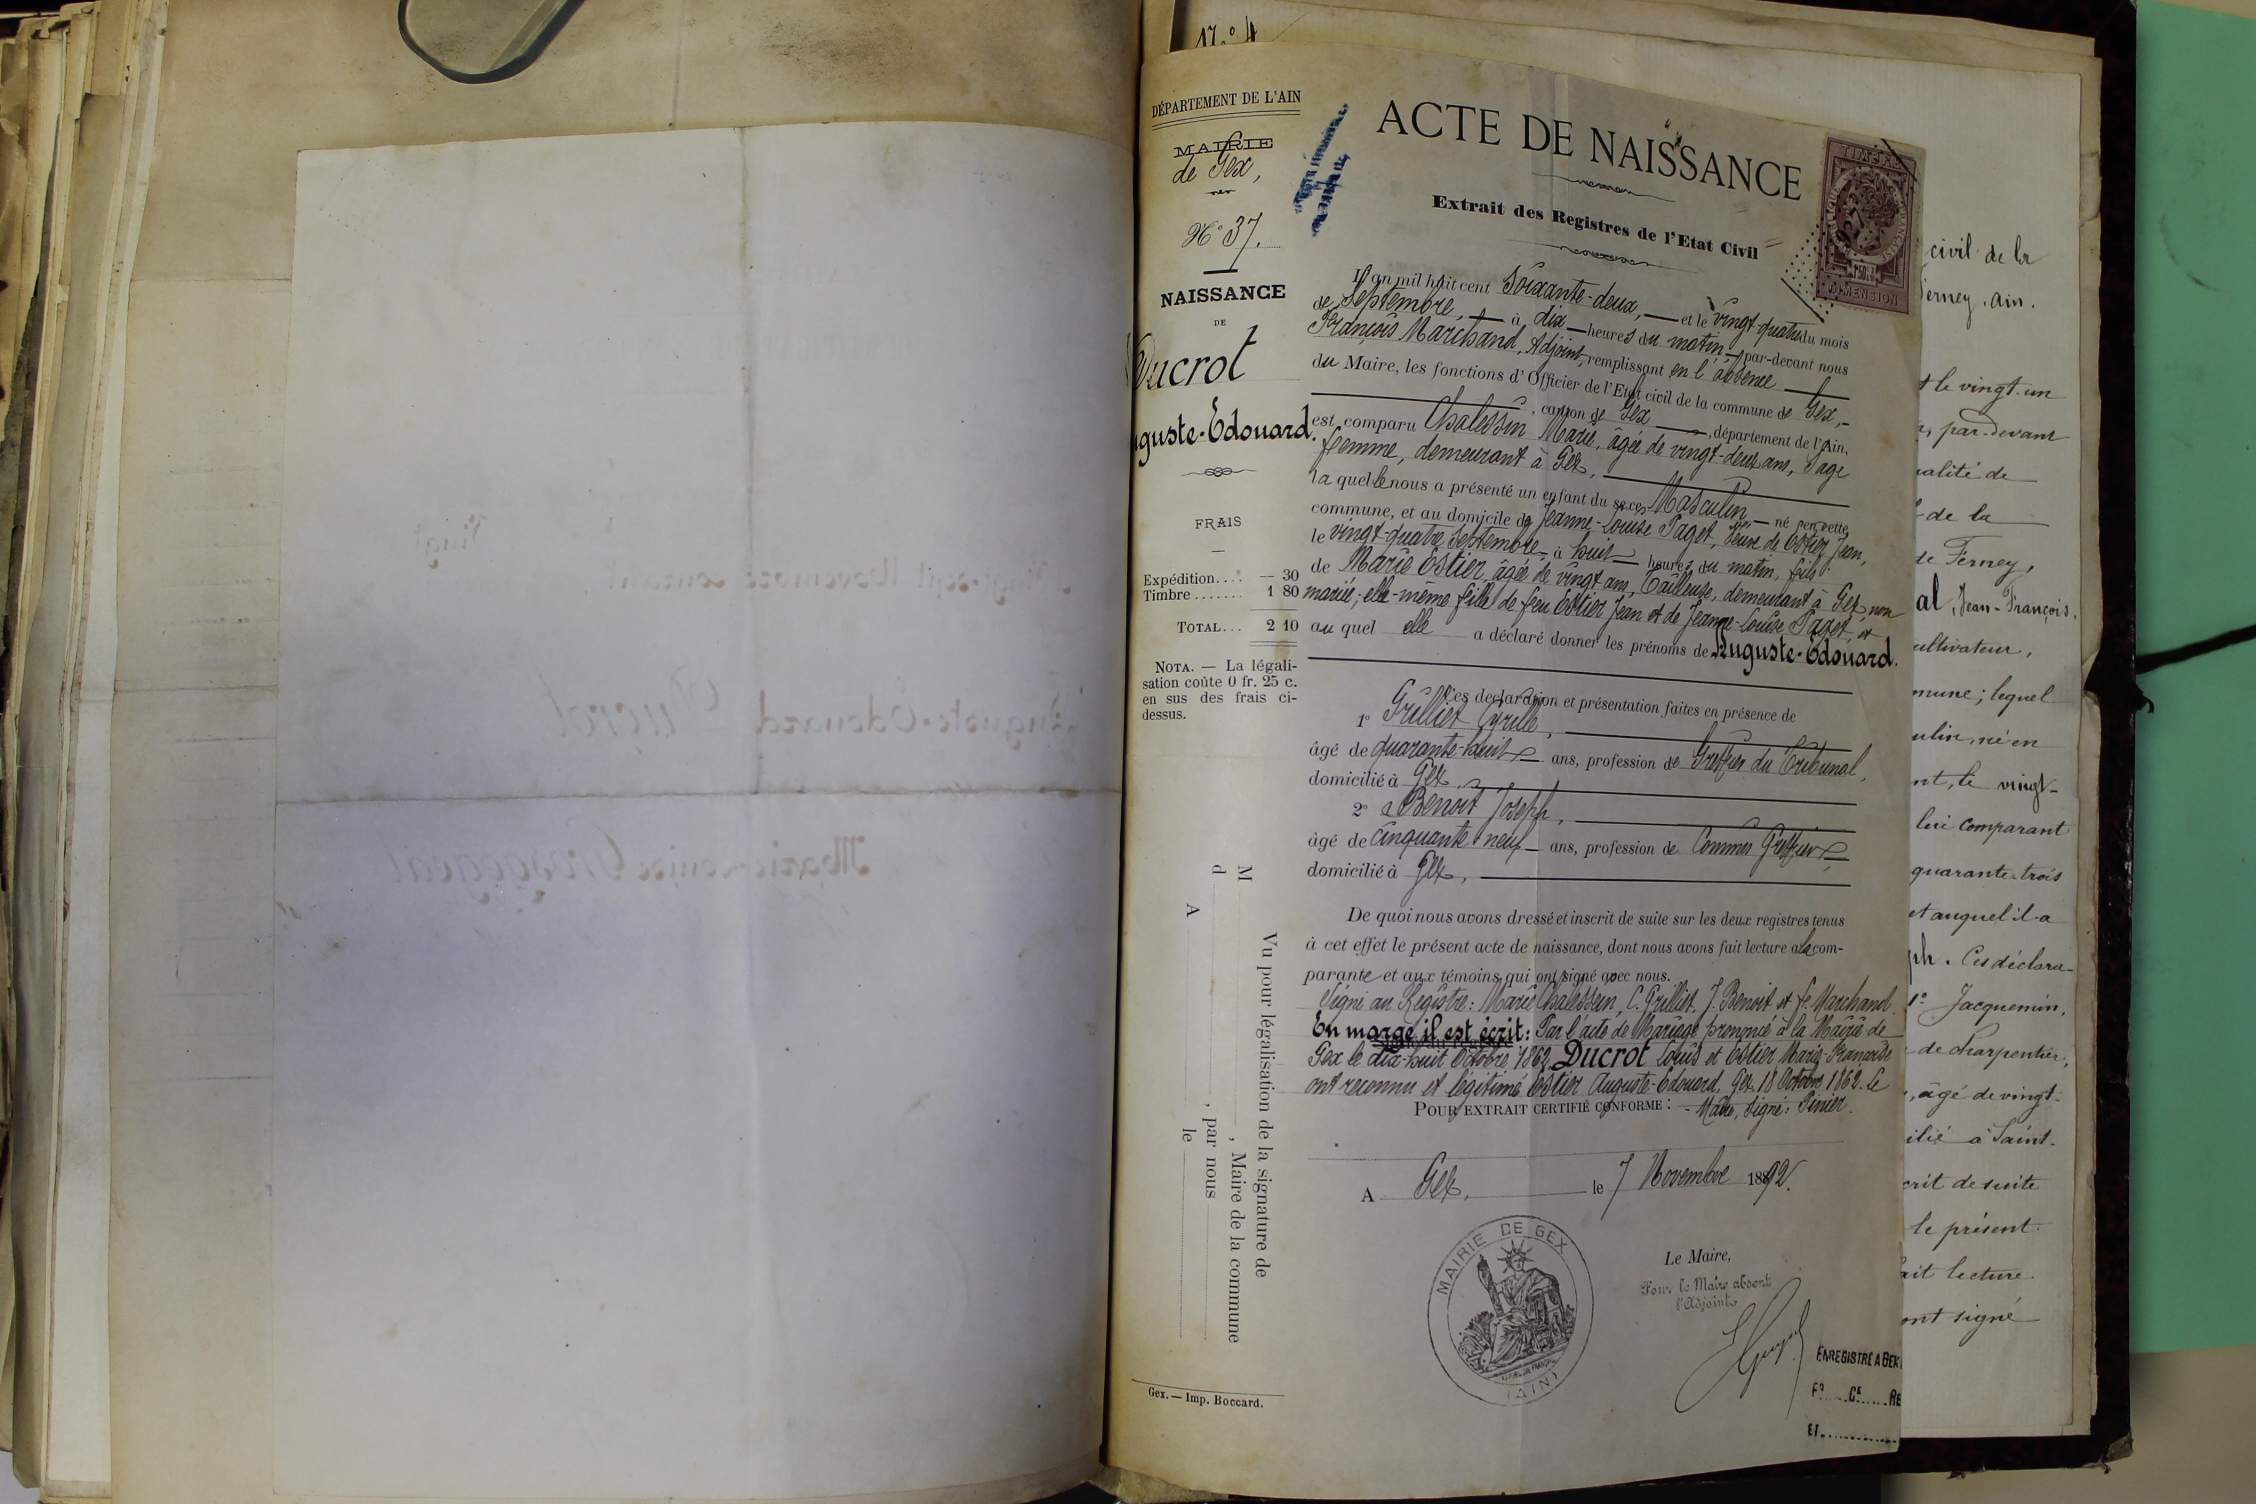 N° 4
DÉPARTEMENT DE L'AIN
MAIRIE
de Gex,
N° 37.
NAISSANCE
DE
Ducrot
Auguste-Edouard.
FRAIS
Expédition.... — 30
Timbre....... 1 80
TOTAL... 2 10
NOTA. — La légali-
sation coûte 0 fr. 25 c.
en sus des frais ci-
dessus.
Vu pour légalisation de la signature de
M , Maire de la commune
d , par nous
A le
Gex. — Imp. Boccard.
ACTE DE NAISSANCE
Extrait des Registres de l'Etat Civil
L'an mil huit cent Soixante-deux, et le vingt-quatre du mois
de Septembre, à dix heures du matin, par-devant nous
François Marchand, Adjoint, remplissant en l'absence
du Maire, les fonctions d'Officier de l'Etat civil de la commune de Gex,
, canton de Gex, département de l'Ain,
est comparu Chalessin Marie, âgée de vingt-deux ans, Sage
femme, demeurant à Gex,
la quelle nous a présenté un enfant du sexe Masculin né en cette
commune, et au domicile de Jeanne-Louise Paget, Veuve de Estier Jean,
le vingt-quatre Septembre, à huit heures du matin, fils
de Marie Estier, âgée de vingt ans, Tailleuse, demeurant à Gex, non
mariée; elle-même fille de feu Estier Jean et de Jeanne-Louise Paget, et
au quel elle a déclaré donner les prénoms de Auguste-Edouard.
Ces declaration et présentation faites en présence de
1° Grilliet Cyrille,
âgé de quarante-huit ans, profession de Greffier du Tribunal,
domicilié à Gex,
2° Benoit Joseph,
âgé de Cinquante neuf ans, profession de Commis Greffier,
domicilié à Gex,
De quoi nous avons dressé et inscrit de suite sur les deux registres tenus
à cet effet le présent acte de naissance, dont nous avons fait lecture à la com-
parante et aux témoins qui ont signé avec nous.
Signé au Registre: Marie Chalessin, C. Grilliet, J. Benoit et Fs Marchand.
En marge il est écrit: Par l'acte de Mariage prononcé à la Mairie de
Gex le dix-huit Octobre 1862, Ducrot Louis et Estier Marie-Françoise
ont reconnu et légitimé Estier Auguste-Edouard. Gex, 18 Octobre 1862. Le
POUR EXTRAIT CERTIFIÉ CONFORME: Maire, Signé:
A Gex, le 7 Novembre 1892.
MAIRIE DE GEX
(AIN)
Le Maire,
Pour le Maire absent
l'Adjoint
ENREGISTRÉ A GEX
F° C° RE
ET
TIMBRE
DIMENSION
civil de la
Ferney, Ain.
et le vingt-un
par-devant
qualité de
de la
de Ferney,
Jean-François,
cultivateur,
commune; lequel
masculin, né en
le vingt-
lui comparant
quarante-trois
et auquel il a
ph. Ces déclara-
1° Jacquemin,
de charpentier,
, âgé de vingt-
domicilié à Saint-
inscrit de suite
le présent
fait lecture
ont signé